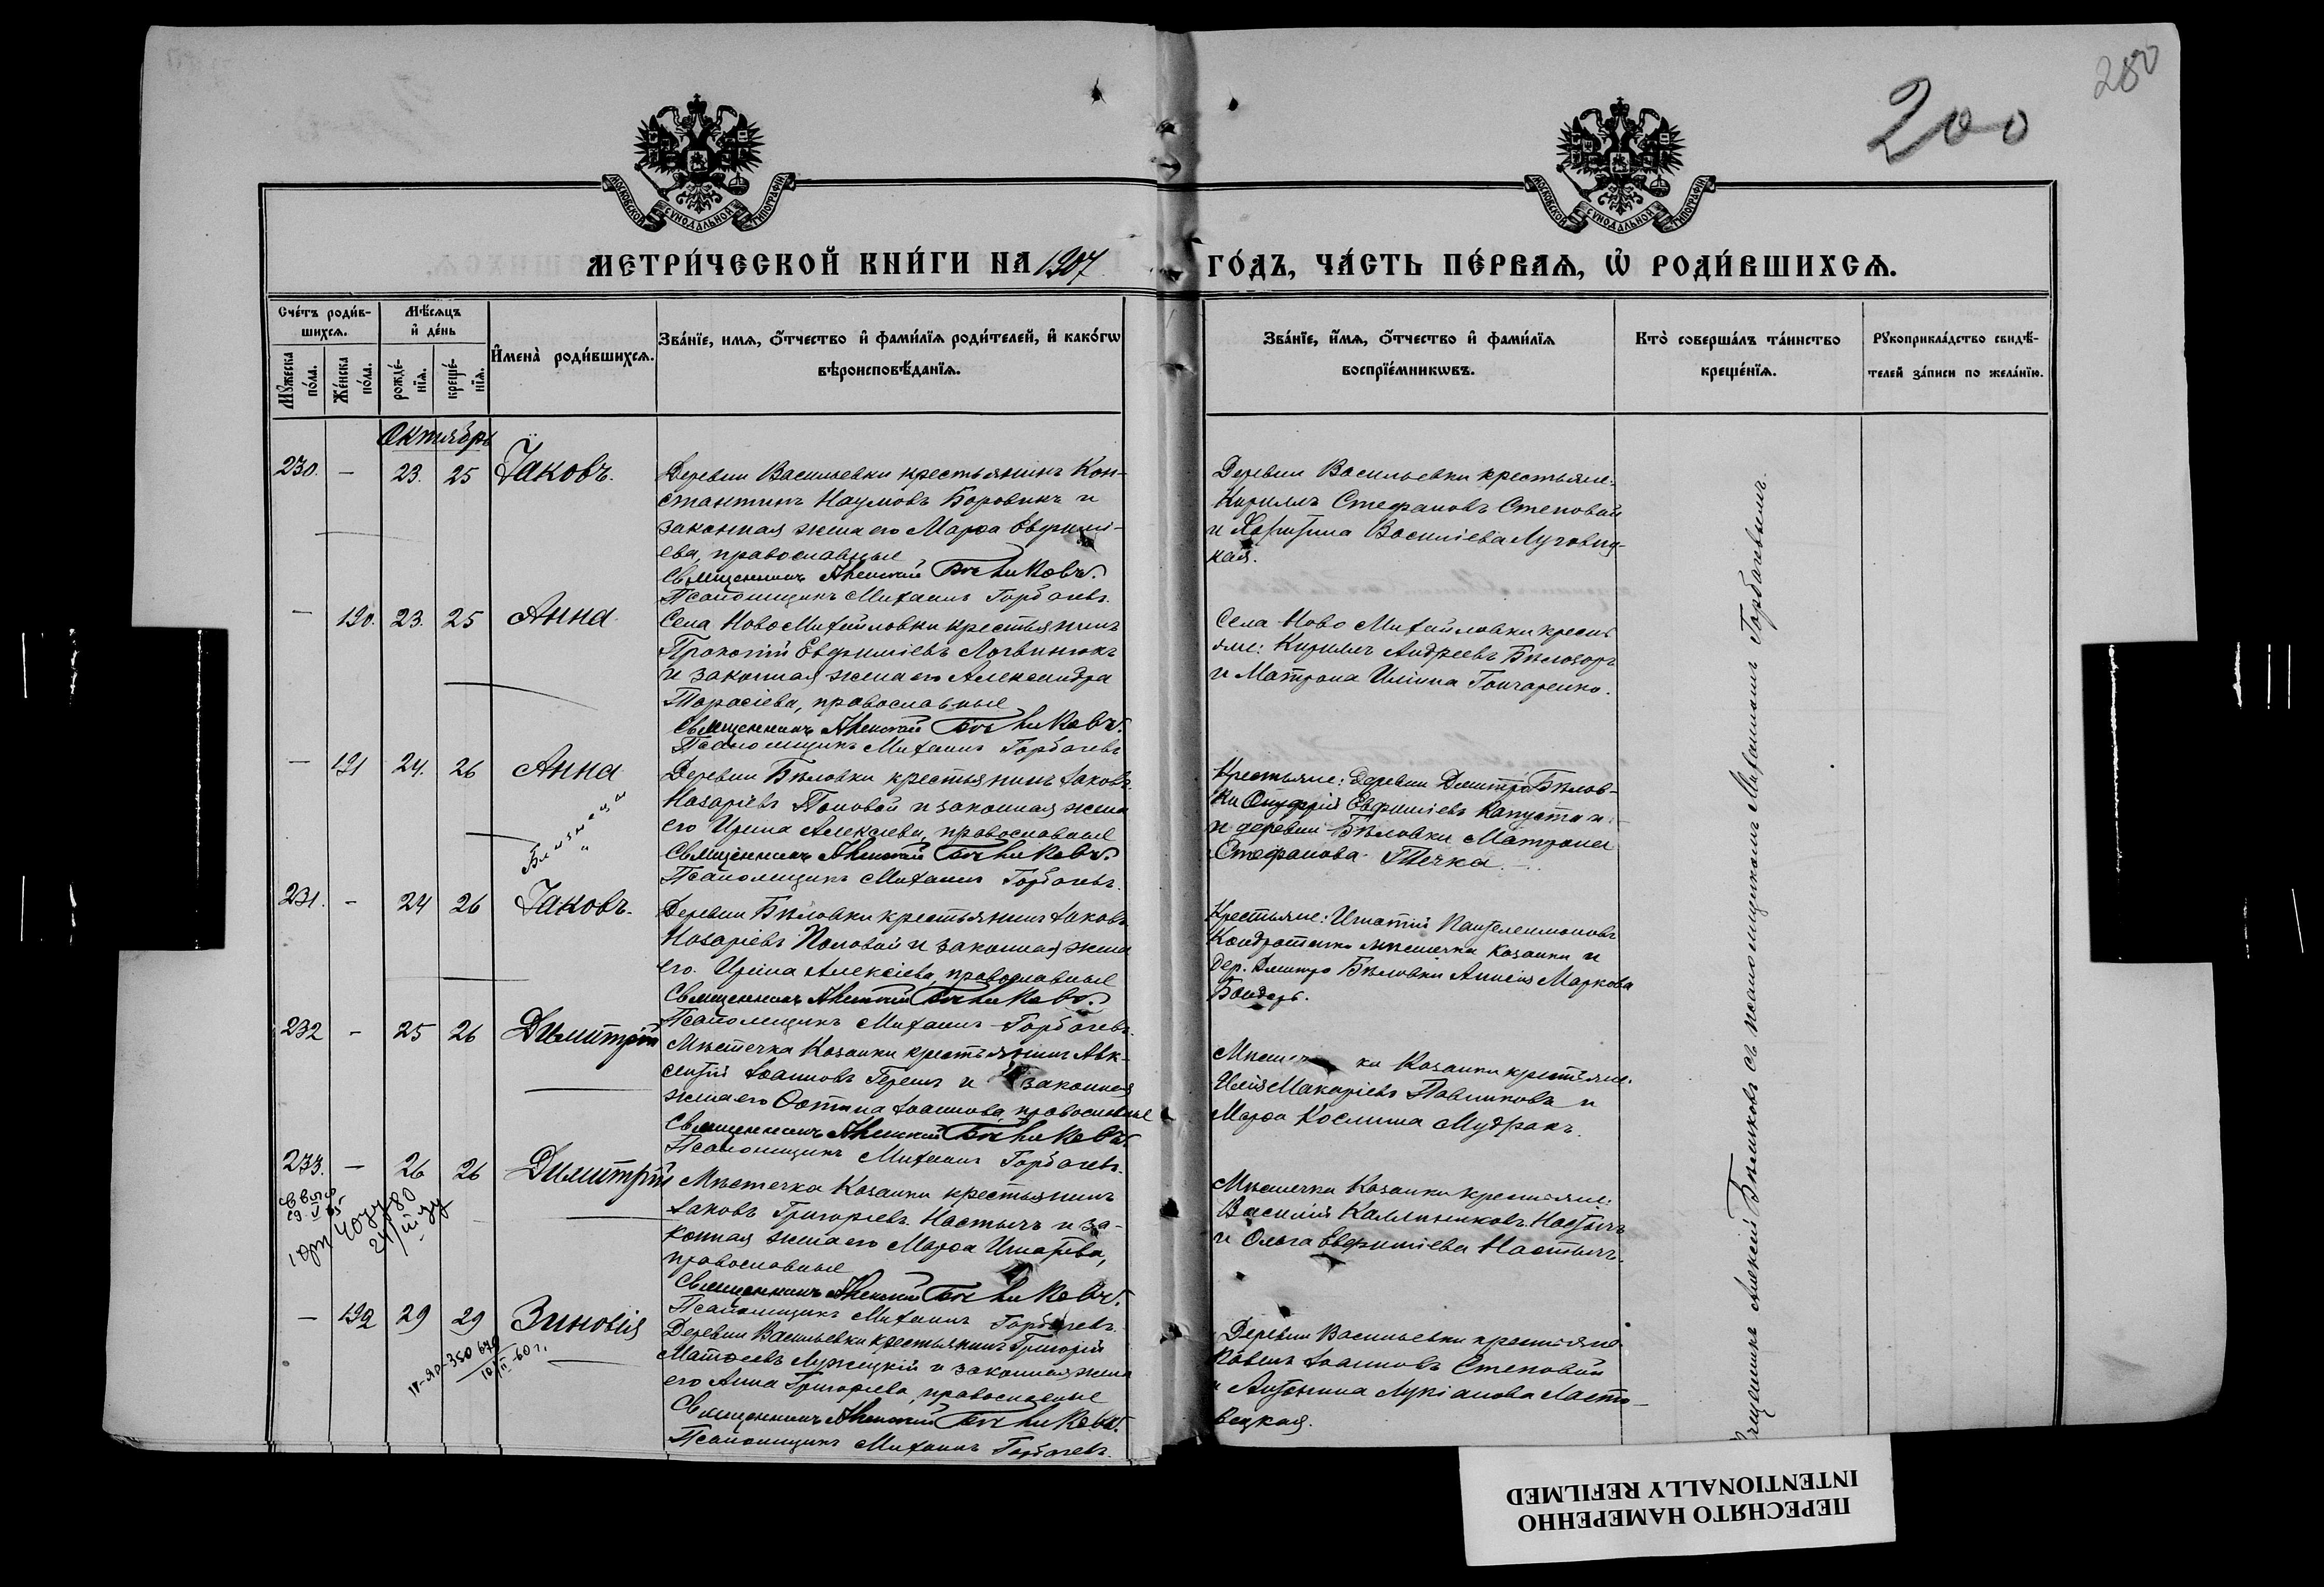 280
200
МОСКОВСКОЙ СѴНОДАЛЬНОЙ ТИПОГРАФІИ
МОСКОВСКОЙ СѴНОДАЛЬНОЙ ТИПОГРАФІИ
МЕТРИ́ЧЕСКОЙ КНИ́ГИ НА 1907 ГО́ДЪ, ЧА́СТЬ ПЕ́РВАѦ, Ѡ҆ РОДИ́ВШИХСѦ.
Сче́тъ роди́в-
шихсѧ.
Мѣ́сѧцъ
и҆ де́нь
Мꙋ́жеска по́ла.
Же́нска по́ла.
рожде́-
нїѧ.
креще́-
нїѧ.
И҆мена̀ роди́вшихсѧ.
Зва́нїе, имѧ, о҆́тчество и҆ фами́лїѧ роди́телей, и҆ како́гѡ
вѣроисповѣ́данїѧ.
Зва́нїе, и҆́мѧ, о҆́тчество и҆ фами́лїѧ
воспрїе́мникѡвъ.
Кто̀ соверша́лъ та́инство
креще́нїѧ.
Рꙋкоприкла́дство свидѣ́-
телей за́писи по жела́нїю.
Октябрь
230. – 23. 25 Іаковъ.
Деревни Васильевки крестьянинъ Кон-
стантинъ Наумовъ Боровикъ и
законная жена его Марѳа Евфимі-
ева, православные
Священникъ Алексій
Псаломщикъ Михаилъ Горбачевъ.
Деревни Васильевки крестьяне:
Кириллъ Стефановъ Степовой
и Харитина Василіева Луговиц-
кая.
– 190. 23. 25 Анна
Села Ново Михайловки крестьянинъ
Прокопій Евфиміевъ Логвинюкъ
и законная жена его Александра
Тарасіева, православные
Священникъ Алексій
Псаломщикъ Михаилъ Горбачевъ
Села Ново Михайловки кресть
яне: Кириллъ Андреевъ Бѣлозоръ
и Матрона Иліина Гончаренко.
– 191 24. 26 Анна
Близнецы
Деревни Бѣловки крестьянинъ Іаковъ
Назаріевъ Половой и законная жена
его Ирина Алексіева, православные
Священникъ Алексій
Псаломщикъ Михаилъ Горбачевъ.
Крестьяне: деревни Дмитро Бѣлов-
ки Онуфрій Евфиміевъ Капуста и
и деревни Бѣловки Матрона
Стефанова
231. – 24 26 Іаковъ.
Деревни Бѣловки крестьянинъ Іаковъ
Назаріевъ Половой и законная жена
его Ирина Алексіева, православные
Священникъ Алексій
Псаломщикъ Михаилъ Горбачевъ.
Крестьяне: Игнатій Пантелеимоновъ
Кондратенко мѣстечка Казанки и
дер. Дмитро Бѣловки Анисія Маркова
Бондарь.
232 – 25 26 Димитрій
Мѣстечка Казанки крестьянинъ Авк-
сентій Іоанновъ и законная
жена его Іоаннова, православные
Священникъ Алексій
Псаломщикъ Михаилъ Горбачевъ.
ки Казанки крестьяне:
Илія Макаріевъ и
Марѳа Космина Мудракъ.
233. – 26 26 Димитрій
Мѣстечка Казанки крестьянинъ
Іаковъ Григоріевъ Настычъ и за-
конная жена его Марѳа Игнатіева,
православные
Священникъ Алексій
Псаломщикъ Михаилъ Горбачевъ.
Мѣстечка Казанки крестьяне:
Василій Каллиниковъ Настычъ
и Ольга Евфиміева Настычъ.
– 192 29 29 Зиновія
Деревни Васильевки крестьянинъ Григорій
Матѳеевъ Лужецкій и законная жена
его Анна Григоріева, православные
Священникъ Алексій
Псаломщикъ Михаилъ Горбачевъ.
Деревни Васильевки крестьяне
Павелъ Іоанновъ Степовой
и Антонина Лукіанова Ласто-
вецкая.
Алексій съ псаломщикомъ Михаиломъ Горбачевымъ.
ПЕРЕСНЯТО НАМЕРЕННО
INTENTIONALLY REFILMED